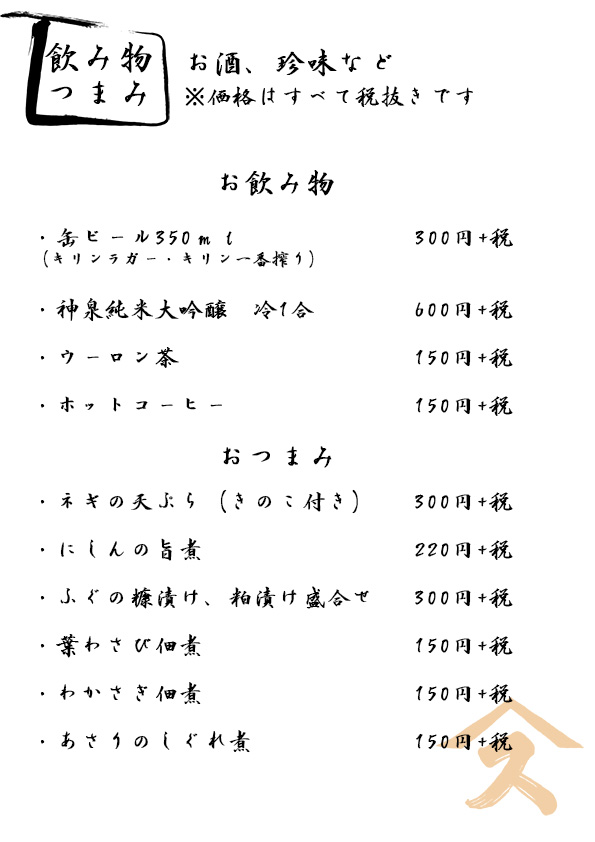 飲み物
つまみ
お酒、珍味など
※価格はすべて税抜きです
お飲み物
・缶ビール350ml 300円+税
(キリンラガー・キリン一番搾り)
・神泉純米大吟醸 冷1合 600円+税
・ウーロン茶 150円+税
・ホットコーヒー 150円+税
おつまみ
・ネギの天ぷら (きのこ付き) 300円+税
・にしんの旨煮 220円+税
・ふぐの糠漬け、粕漬け盛合せ 300円+税
・葉わさび佃煮 150円+税
・わかさぎ佃煮 150円+税
・あさりのしぐれ煮 150円+税
ス